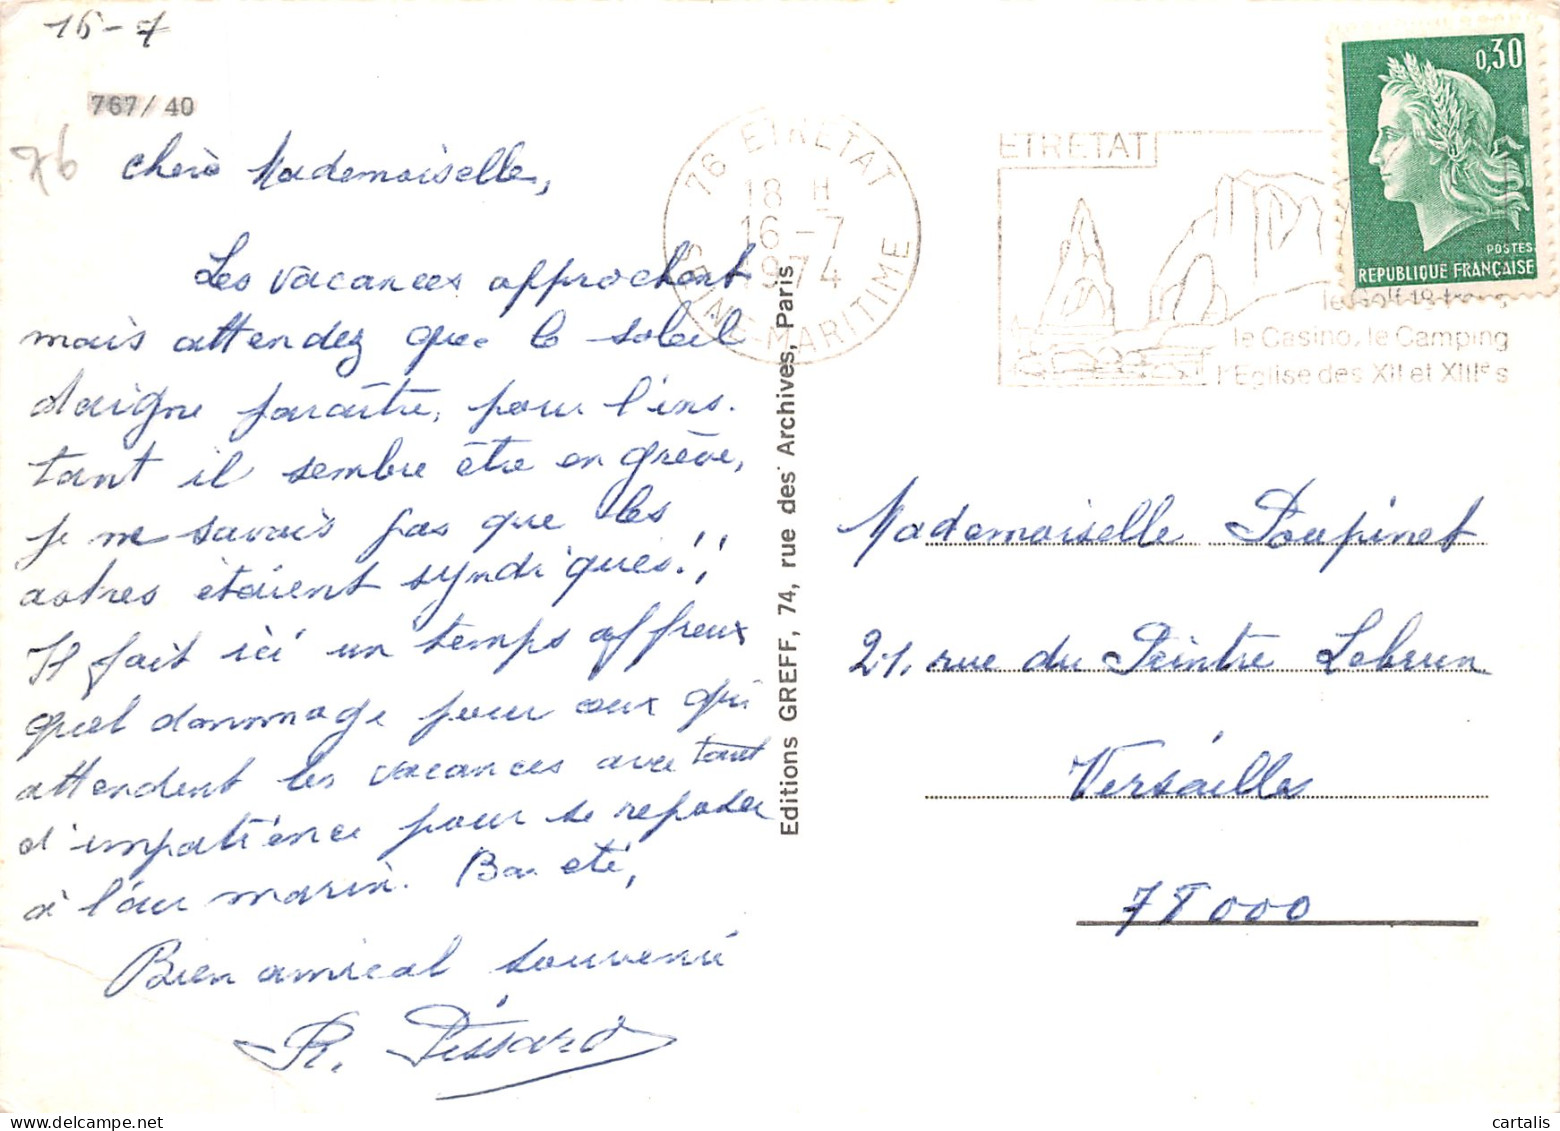 15-7
767/40
76
Chère Mademoiselle,
Les vacances approchent
mais attendez que le soleil
daigne paraître, pour l'ins-
tant il semble être en grève,
je ne savais pas que les
astres étaient syndiqués!!
Il fait ici un temps affreux
quel dommage pour ceux qui
attendent les vacances avec tant
d'impatience pour se reposer
à l'air marin. Bon été,
Bien amical souvenir
Pissard
Editions GREFF, 74, rue des Archives, Paris
76 ETRETAT
18 H
16-7
1974
SEINE-MARITIME
ETRETAT
le Golf 18 trous
le Casino, le Camping
l'Eglise des XII et XIIIᵉ s
0,30
POSTES
REPUBLIQUE FRANÇAISE
Mademoiselle Poupinet
21, rue du Peintre Lebrun
Versailles
78000
cartalis